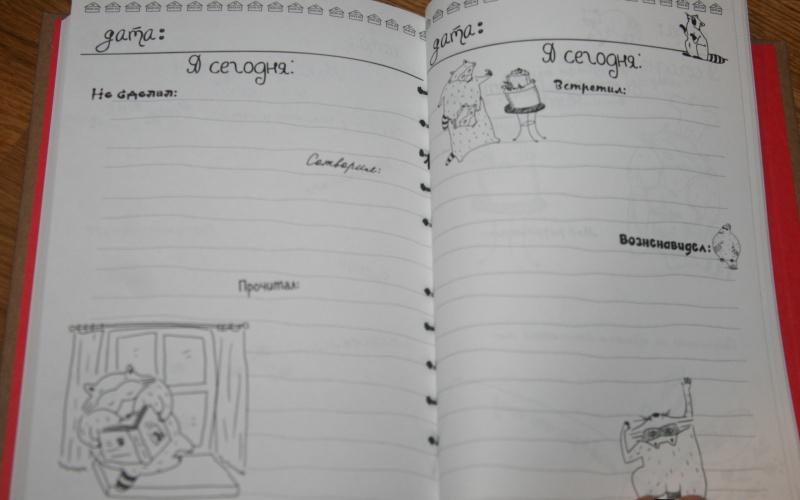 дата:
Я сегодня:
Не сделал:
Сотворил:
Прочитал:
дата:
Я сегодня:
Встретил:
Возненавидел: